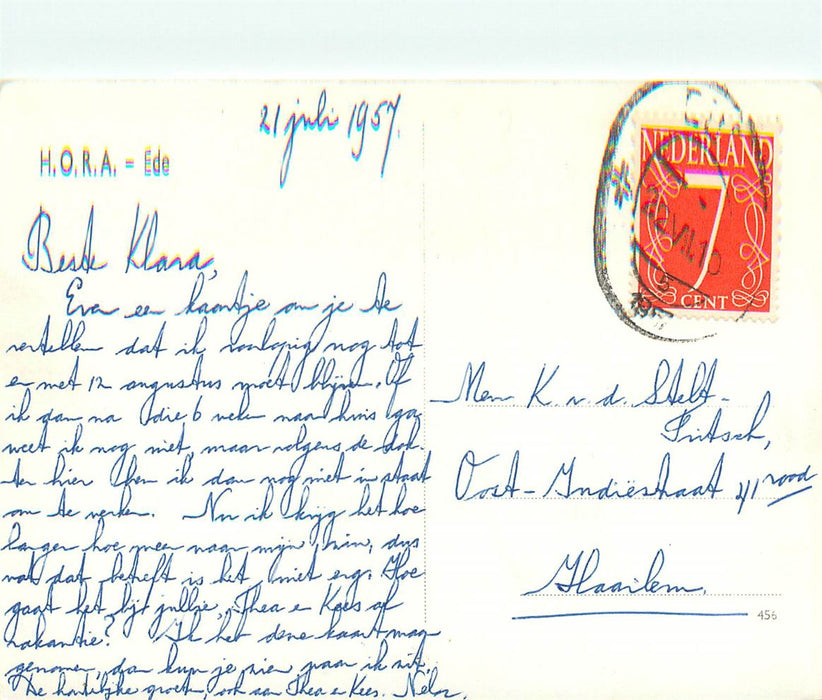 21 juli 1957.
H.O.R.A. = Ede
Beste Klara,
Even een kaartje om je te
vertellen dat ik voorlopig nog tot
en met 12 augustus moet blijven. Of
ik dan na die 6 weken naar huis ga
weet ik nog niet, maar volgens de dok-
ter hier ben ik dan nog niet in staat
om te werken. Nu ik krijg het hoe
langer hoe meer naar mijn zin, dus
wat dat betreft is het niet erg. Hoe
gaat het bij jullie, Thea en Kees al
vakantie? Ik heb deze kaart maar
genomen, dan kun je zien waar ik zit.
De hartelijke groeten, ook aan Thea en Kees. Nelor.
NEDERLAND
7
CENT
22.VII.10
1957
Mevr K. v. d. Stelt-
Fritsch,
Oost-Indiëstraat 41 rood
Haarlem.
456